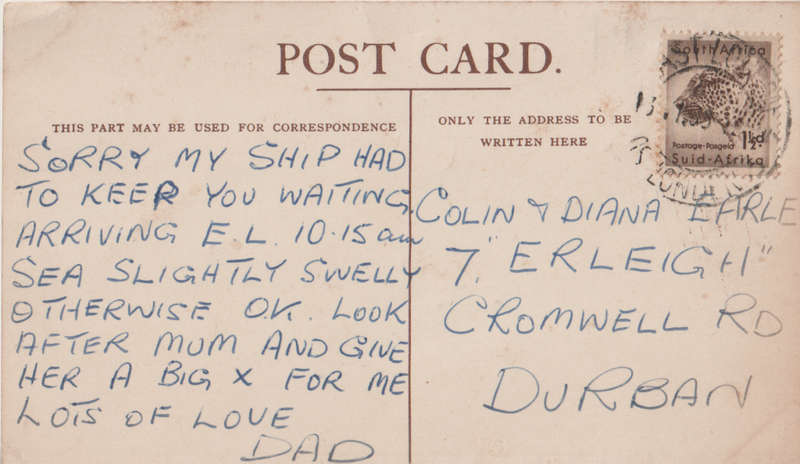 POST CARD.
THIS PART MAY BE USED FOR CORRESPONDENCE
ONLY THE ADDRESS TO BE
WRITTEN HERE
SORRY MY SHIP HAD
TO KEEP YOU WAITING.
ARRIVING E.L. 10.15am
SEA SLIGHTLY SWELLY
OTHERWISE O.K. LOOK
AFTER MUM AND GIVE
HER A BIG X FOR ME
LOTS OF LOVE
DAD
COLIN & DIANA EARLE
7, "ERLEIGH"
CROMWELL RD
DURBAN
South Africa
1½d
Postage-Posgeld
Suid-Afrika